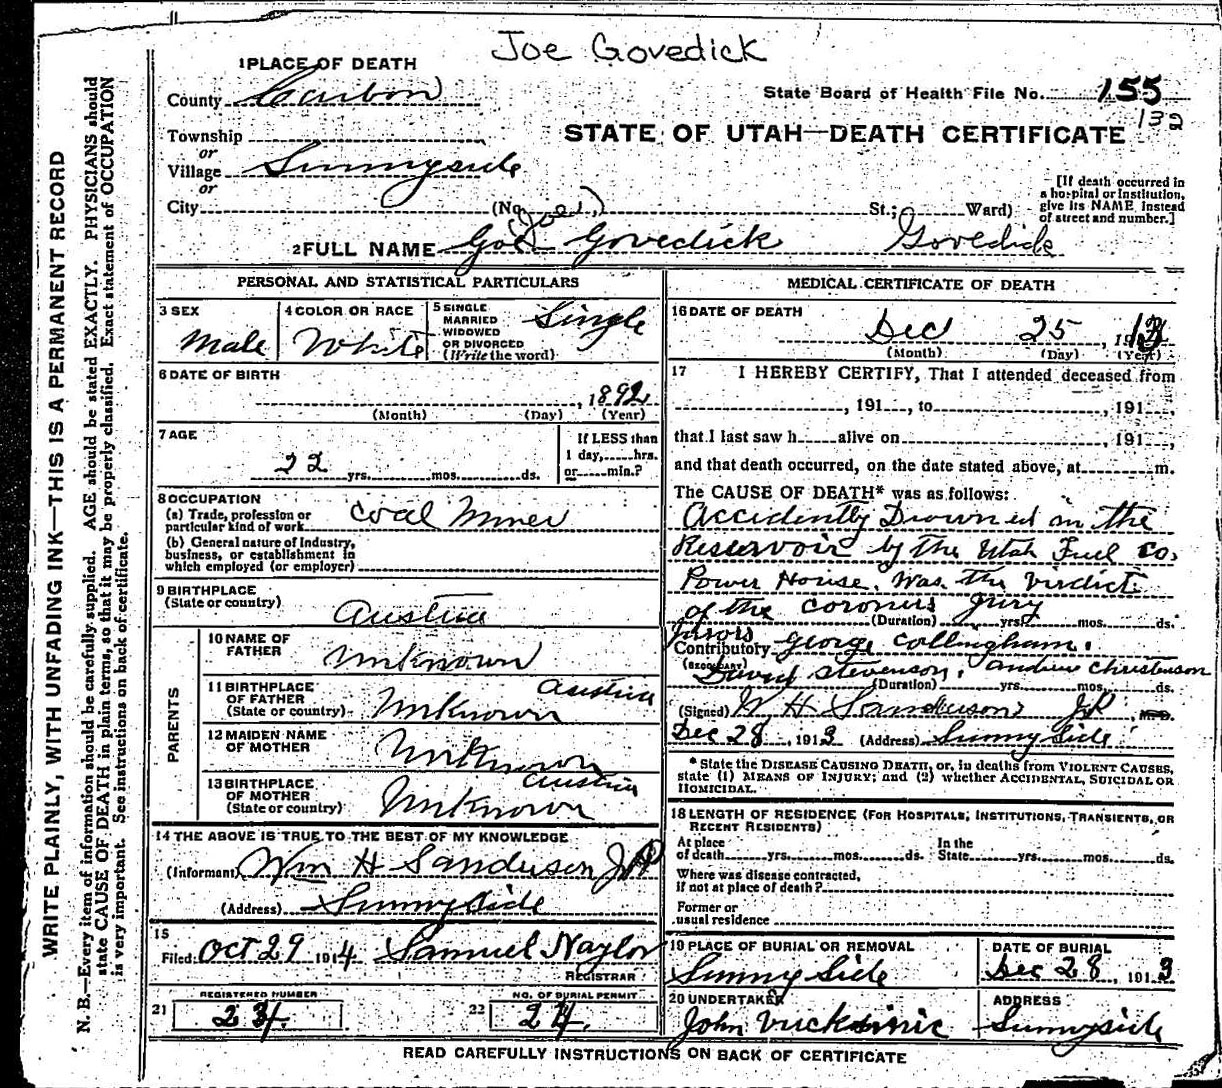 Joe Govedick
1 PLACE OF DEATH
County Carbon
State Board of Health File No. 155
132
Township
or
Village Sunnyside
or
City
STATE OF UTAH—DEATH CERTIFICATE
(No. St.; Ward)
[If death occurred in
a hospital or institution,
give its NAME instead
of street and number.]
(Joe)
2 FULL NAME Goe Govedick Govedick
PERSONAL AND STATISTICAL PARTICULARS
3 SEX
Male
4 COLOR OR RACE
White
5 SINGLE
MARRIED
WIDOWED
OR DIVORCED
(Write the word)
Single
6 DATE OF BIRTH
, 1892
(Month) (Day) (Year)
7 AGE
22 yrs. mos. ds.
If LESS than
1 day, hrs.
or min.?
8 OCCUPATION
(a) Trade, profession or
particular kind of work
Coal Miner
(b) General nature of industry,
business, or establishment in
which employed (or employer)
9 BIRTHPLACE
(State or country)
Austria
PARENTS
10 NAME OF
FATHER
Unknown
11 BIRTHPLACE
OF FATHER
(State or country)
Austria
Unknown
12 MAIDEN NAME
OF MOTHER
Unknown
13 BIRTHPLACE
OF MOTHER
(State or country)
Austria
Unknown
14 THE ABOVE IS TRUE TO THE BEST OF MY KNOWLEDGE
(Informant) Wm H Sanderson J.P.
(Address) Sunny Side
15
Filed Oct 29 1914 Samuel Naylor
REGISTRAR
21 REGISTERED NUMBER
24
22 NO. OF BURIAL PERMIT
24.
MEDICAL CERTIFICATE OF DEATH
16 DATE OF DEATH
Dec 25, 1913
(Month) (Day) (Year)
17 I HEREBY CERTIFY, That I attended deceased from
, 191 , to , 191 ,
that I last saw h alive on , 191 ,
and that death occurred, on the date stated above, at m.
The CAUSE OF DEATH* was as follows:
Accidently Drowned in the
Reservoir by the Utah Fuel Co.
Power House. Was the Virdict
of the coroners Jury
(Duration) yrs. mos. ds.
Jurors
Contributory George Collingham.
(SECONDARY) David Stevenson. Andrew Christenson
(Duration) yrs. mos. ds.
(Signed) W H Sanderson JP, M.D.
Dec 28, 1913 (Address) Sunny Side
* State the DISEASE CAUSING DEATH, or, in deaths from VIOLENT CAUSES,
state (1) MEANS OF INJURY; and (2) whether ACCIDENTAL, SUICIDAL OR
HOMICIDAL.
18 LENGTH OF RESIDENCE (FOR HOSPITALS, INSTITUTIONS, TRANSIENTS, OR
RECENT RESIDENTS)
At place
of death yrs. mos. ds.
In the
State yrs. mos. ds.
Where was disease contracted,
if not at place of death?
Former or
usual residence
19 PLACE OF BURIAL OR REMOVAL
Sunny Side
DATE OF BURIAL
Dec 28, 1913
20 UNDERTAKER
John
ADDRESS
Sunnyside
READ CAREFULLY INSTRUCTIONS ON BACK OF CERTIFICATE
WRITE PLAINLY, WITH UNFADING INK—THIS IS A PERMANENT RECORD
N. B.—Every item of information should be carefully supplied. AGE should be stated EXACTLY. PHYSICIANS should
state CAUSE OF DEATH in plain terms, so that it may be properly classified. Exact statement of OCCUPATION
is very important. See instructions on back of certificate.